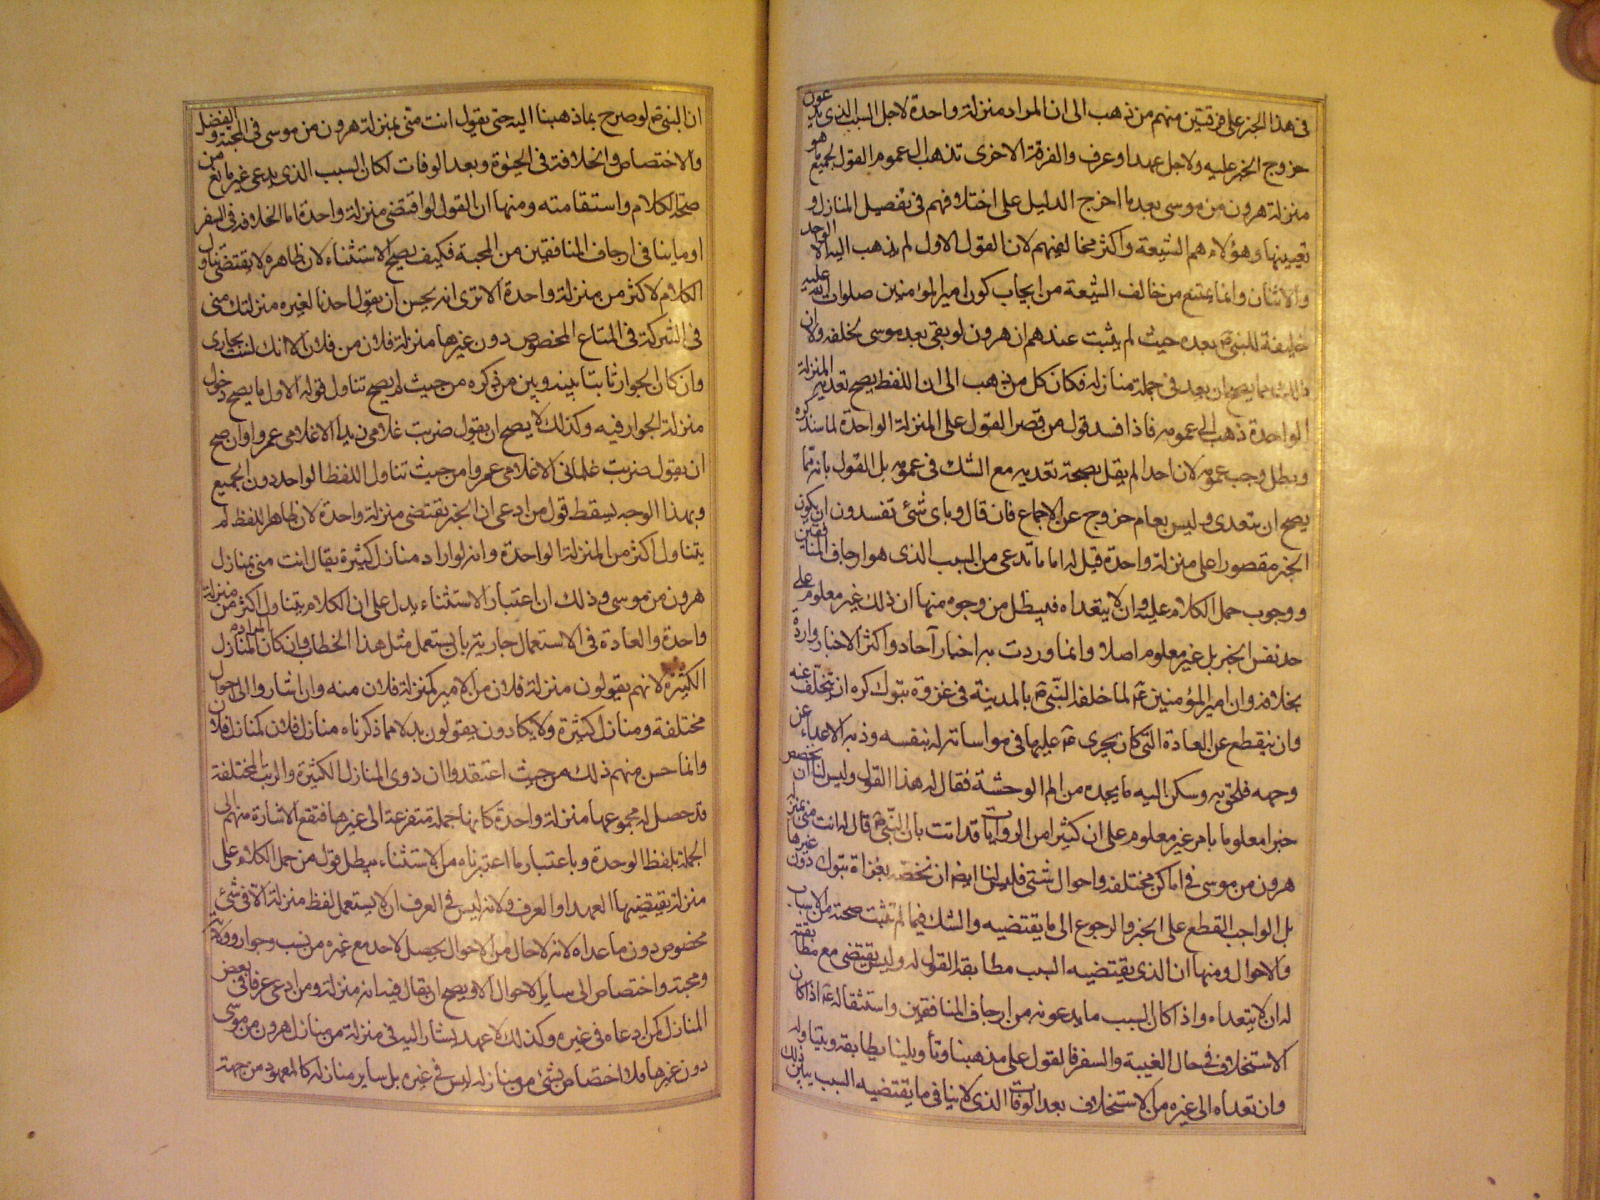 فى هذا الخبر على فرقتين منهم من ذهب الى ان المراد منزلة واحدة لاجل السبب الذى يدعون
خروج الخبر عليه ولاجل عهد او عرف والفرقة الاخرى تذهب الى عموم القول لجميع ما هو
منزلة هرون من موسى بعد ما اخرج الدليل على اختلافهم فى تفصيل المنازل و
تعيينها وهؤلاء هم الشيعة واكثر مخالفيهم لان القول الاول لم يذهب اليه الا الواحد
والاثنان وانما يمتنع من خالف الشيعة من ايجاب كون امير المؤمنين صلوات الله عليه
خليفة للنبى ص بعده حيث لم يثبت عندهم ان هرون لو بقى بعد موسى لخلفه ولا ان
ذلك مما يصح ان يعد فى جملة منازله فكان كل من ذهب الى ان اللفظ يصح تعديه المنزلة
الواحدة ذهب الى عمومه فاذا فسد قول من قصر القول على المنزلة الواحدة لما سنذكره
وبطل وجب عمومه لان احدا لم يقل بصحة تعديه مع الشك فى عمومه بل القول بانه مما
يصح ان يتعدى وليس بعام خروج عن الاجماع فان قال وباى شئ تفسدون ان يكون
الخبر مقصورا على منزلة واحدة قيل له اما ما تدعى من السبب الذى هو ارجاف المنافقين
ووجوب حمل الكلام عليه وان لا يتعداه فيبطل من وجوه منها ان ذلك غير معلوم على
حد نفس الخبر بل غير معلوم اصلا وانما وردت به اخبار آحاد واكثر الاخبار واردة
بخلافه وان امير المؤمنين ع لما خلفه النبى ص بالمدينة فى غزوة تبوك كره ان يتخلف عنه
وان ينقطع عن العادة التى كان يجرى ع عليها فى مواساته له بنفسه وذبه الاعداء عن
وجهه فلحق به وسكن اليه ما يجده من الم الوحشة فقال له هذا القول وليس لنا ان نخصص
خبرا معلوما بامر غير معلوم على ان كثيرا من الروايات قد اتت بان النبى ص قال له انت منى بمنزلة
هرون من موسى فى اماكن مختلفة واحوال شتى فليس لنا ايضا ان نخصه بغزاة تبوك دون غيرها
بل الواجب القطع على الخبر والرجوع الى ما يقتضيه والشك فيما لم تثبت صحته من الاسباب
والاحوال ومنها ان الذى يقتضيه السبب مطابقة القول له وليس يقتضى مع مطابقته
له ان لا يتعداه واذا كان السبب ما يدعونه من ارجاف المنافقين واستثقاله ع اذا كان
الاستخلاف فى حال الغيبة والسفر فالقول على مذهبنا وتأويلنا يطابقه ويتناوله
وان تعداه الى غيره من الاستخلاف بعد الوفات الذى لا ينافى ما يقتضيه السبب يبين ذلك
ان النبى ص لو صرح بما ذهبنا اليه حتى يقول انت منى بمنزلة هرون من موسى فى المحبة والفضل
والاختصاص والخلافة فى الحيوة وبعد الوفات لكان السبب الذى يدعى غير مانع من
صحة الكلام واستقامته ومنها ان القول لو اقتضى منزلة واحدة اما الخلافة فى السفر
او ما ينافى ارجاف المنافقين من المحبة فكيف يصح الاستثناء لان ظاهره لا يقتضى تناول
الكلام لاكثر من منزلة واحدة الا ترى انه يحسن ان يقول احدنا لغيره منزلتك منى
فى الشركة فى المتاع المخصوص دون غيرها منزلة فلان من فلان الا انك لست بجارى
وان كان الجوار ثابتا بينه وبين من ذكره من حيث لم يصح تناول قوله الاول ما يصح دخول
منزلة الجوار فيه وكذلك لا يصح ان يقول ضربت غلامى زيدا الا غلامى عمروا وان صح
ان يقول ضربت غلمانى الا غلامى عمروا من حيث تناول اللفظ الواحد دون الجميع
وبهذا الوجه يسقط قول من ادعى ان الخبر يقتضى منزلة واحدة لان ظاهر اللفظ لم
يتناول اكثر من المنزلة الواحدة وانه لو اراد منازل كثيرة يقال انت منى بمنازل
هرون من موسى وذلك ان اعتبار الاستثناء يدل على ان الكلام يتناول اكثر من منزلة
واحدة والعادة فى الاستعمال جارية بان يستعمل مثل هذا الخطاب وان كان المراد المنازل
الكثيرة لانهم يقولون منزلة فلان من الامير كمنزلة فلان منه وان اشاروا الى احوال
مختلفة ومنازل كثيرة ولا يكادون يقولون بدلا مما ذكرناه منازل فلان كمنازل فلان
وانما حسن منهم ذلك من حيث اعتقدوا ان ذوى المنازل الكثيرة والرتب المختلفة
قد حصل له بمجموعها منزلة واحدة كانها جملة متفرعة الى غيرها فتقع الاشارة منهم الى
الجملة بلفظ الوحدة وباعتبار ما اعتبرناه من الاستثناء يبطل قول من حمل الكلام على
منزلة يقتضيها العهد او العرف ولانه ليس فى العرف ان لا يستعمل لفظ منزلة الا فى شئ
مخصوص دون ما عداه لانه لا حال من الاحوال يحصل لاحد مع غيره من نسب وجوار وولاية
ومحبة واختصاص الى ساير الاحوال الا ويصح ان يقال فيه انه منزلة ومن ادعى عرفا فى بعض
المنازل كمن ادعاه فى غيره وكذلك لا عهد يشار اليه فى منزلة من منازل هرون من موسى
دون غيرها فلا اختصاص بشئ من منازله ليس فى غيره بل ساير منازله كالمعهود من جهة